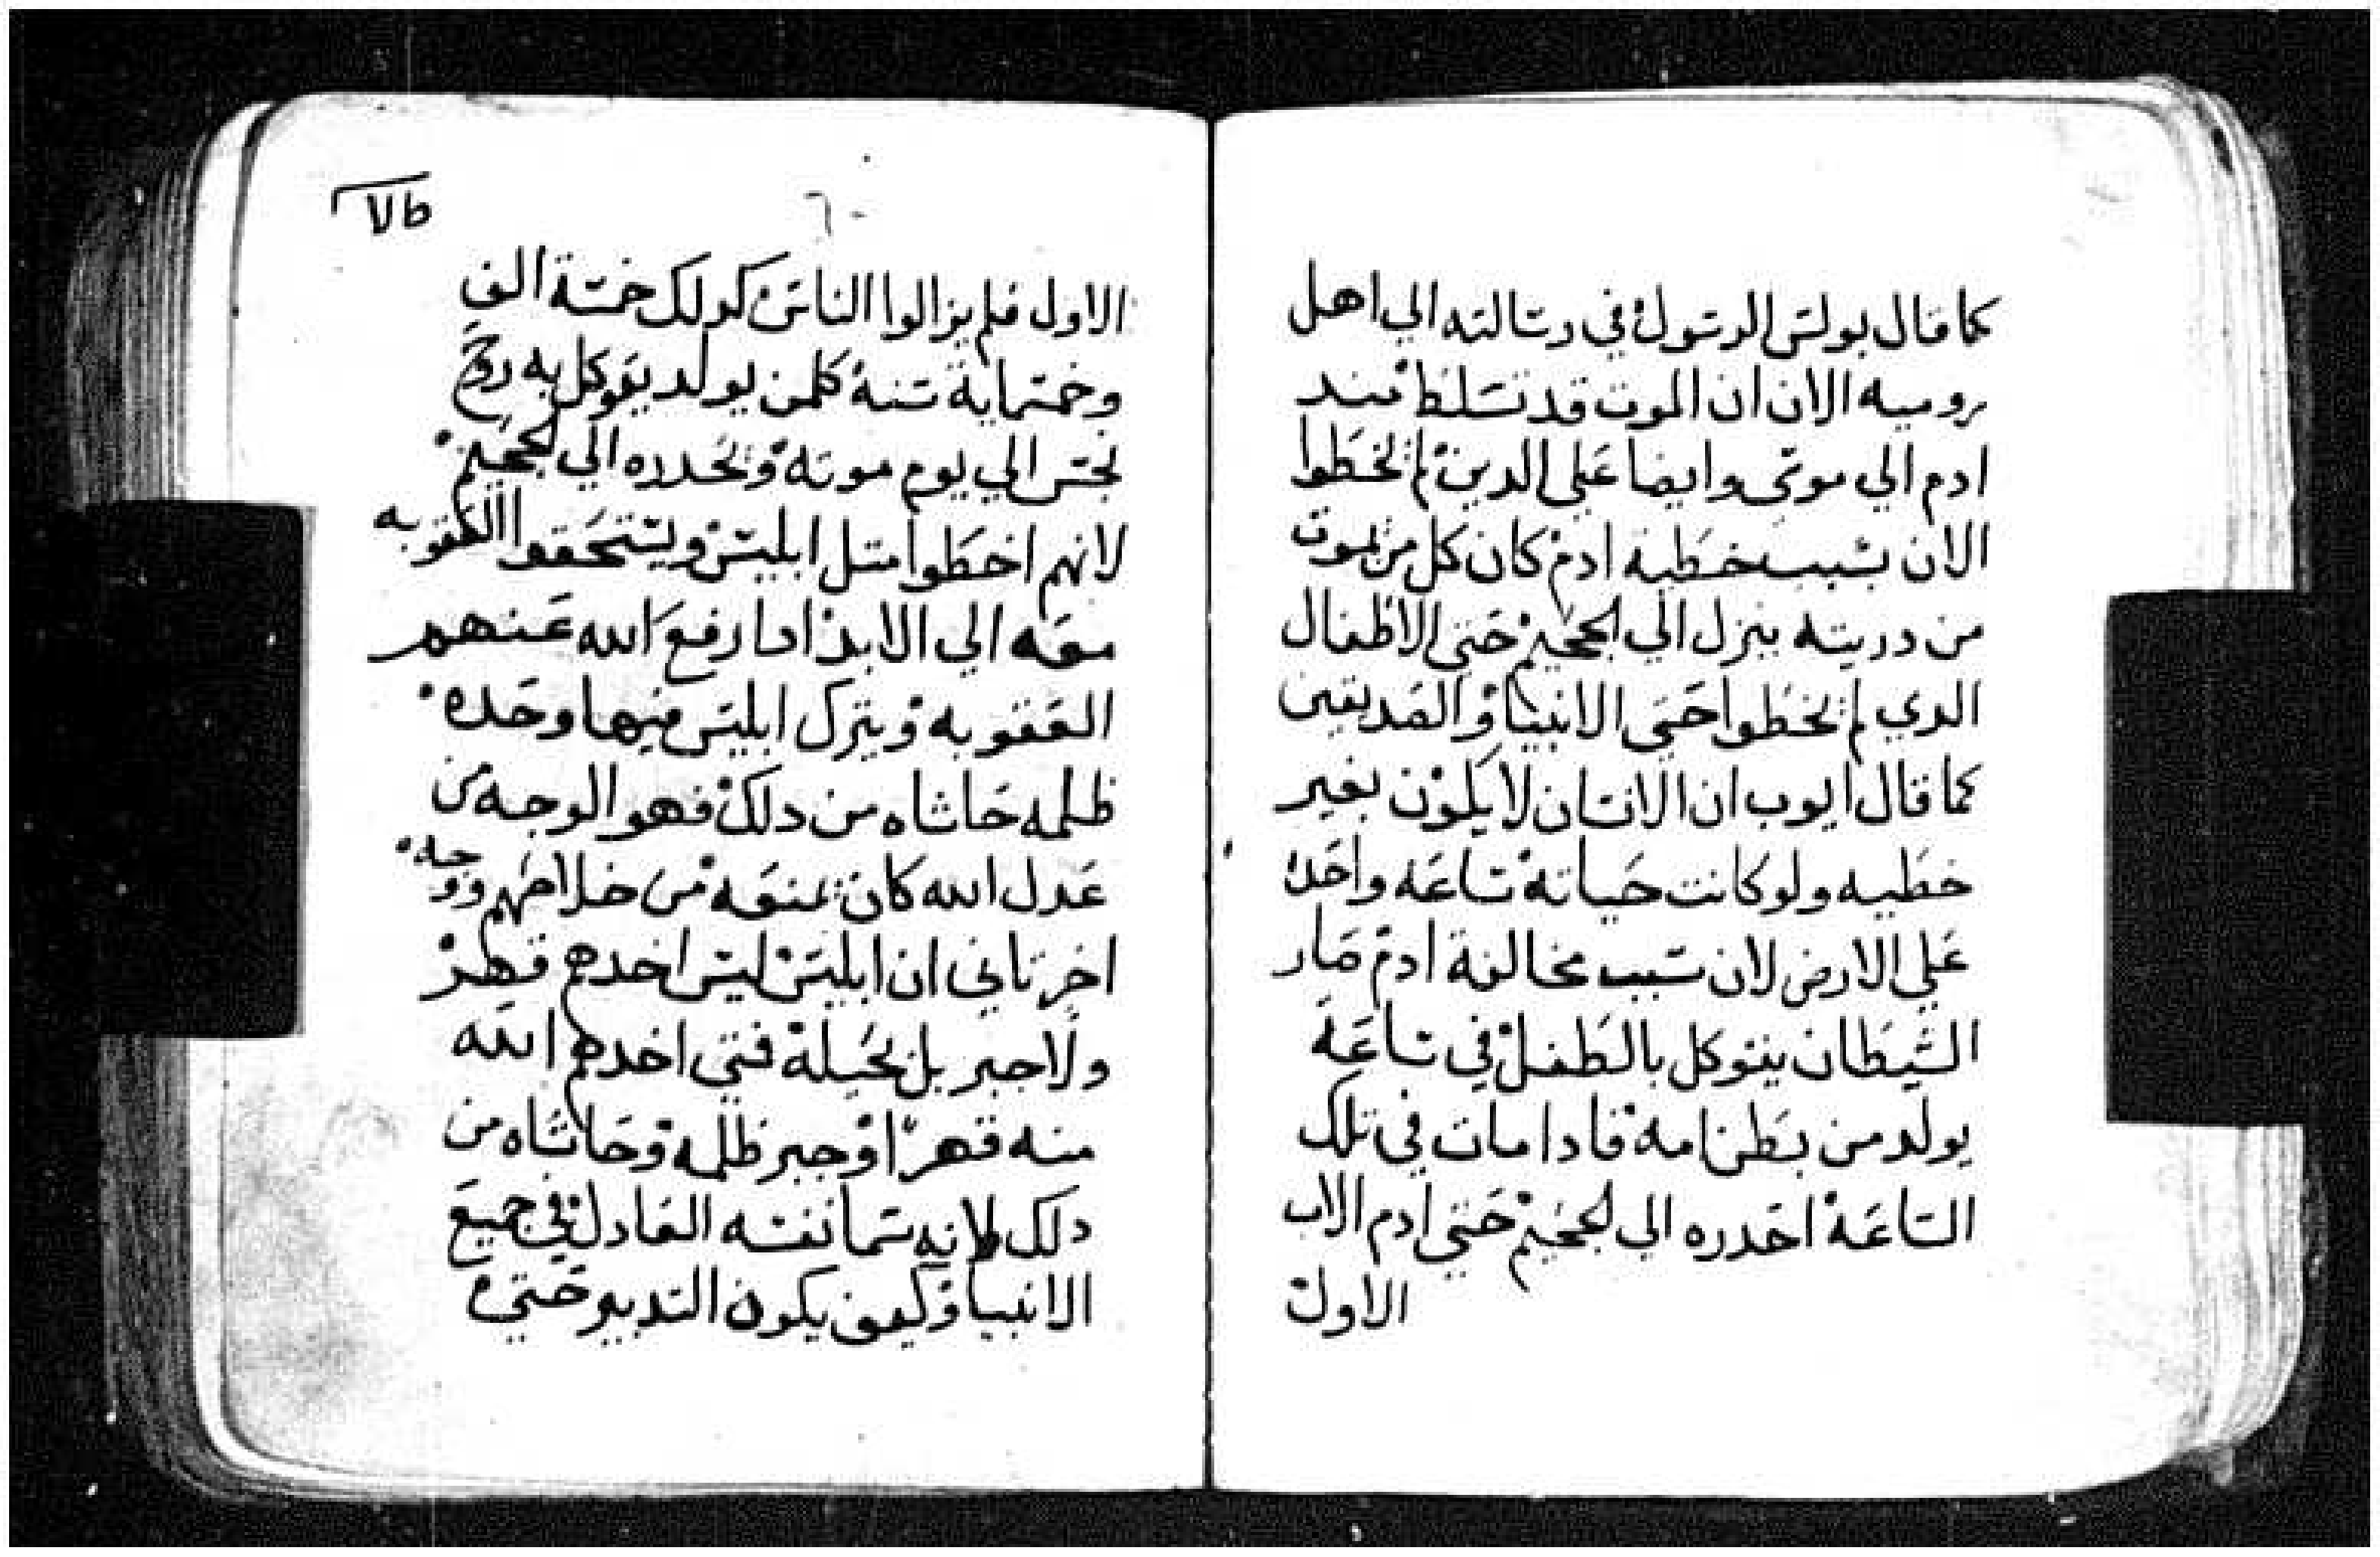 كما قال بولس الرسول في رسالته الي اهل
روميه الان ان الموت قد تسلط مند
ادم الي موسي وايضا علي الدين لم يخطوا
الان بسبب خطية ادم كان كل من يموت
من دريته ينزل الي الجحيم حتي الاطفال
الدي لم يخطوا حتي الانبيا والصديقين
كما قال ايوب ان الانسان لا يكون بغير
خطيه ولو كانت حياته ساعه واحده
علي الارض لان سبب مخالفة ادم صار
الشيطان يتوكل بالطفل في ساعة
يولد من بطن امه فادا مات في تلك
الساعة احدره الي الجحيم حتي ادم الاب
الاول
الاول فلم يزالوا الناس كدلك خمسة الف
وخمسماية سنه كلمن يولد يتوكل به روح
نجس الي يوم موته ويحدره الي الجحيم
لانهم اخطوا متل ابليس ويستحقوا العقوبه
معه الي الابد ادا رفع الله عنهم
العقوبه ويترك ابليس فيها وحده
ظلمه حاشاه من دلك فهو الوجه من
عدل الله كان يمنعه من خلاصهم ووجه
اخر تاني ان ابليس ليس اخدهم قهر
ولا جبر بل بحيلة فمتي اخدهم الله
منه قهرا او جبر ظلمه وحاشاه من
دلك لانه سما نفسه العادل في جميع
الانبيا وكيف يكون التدبير حتي